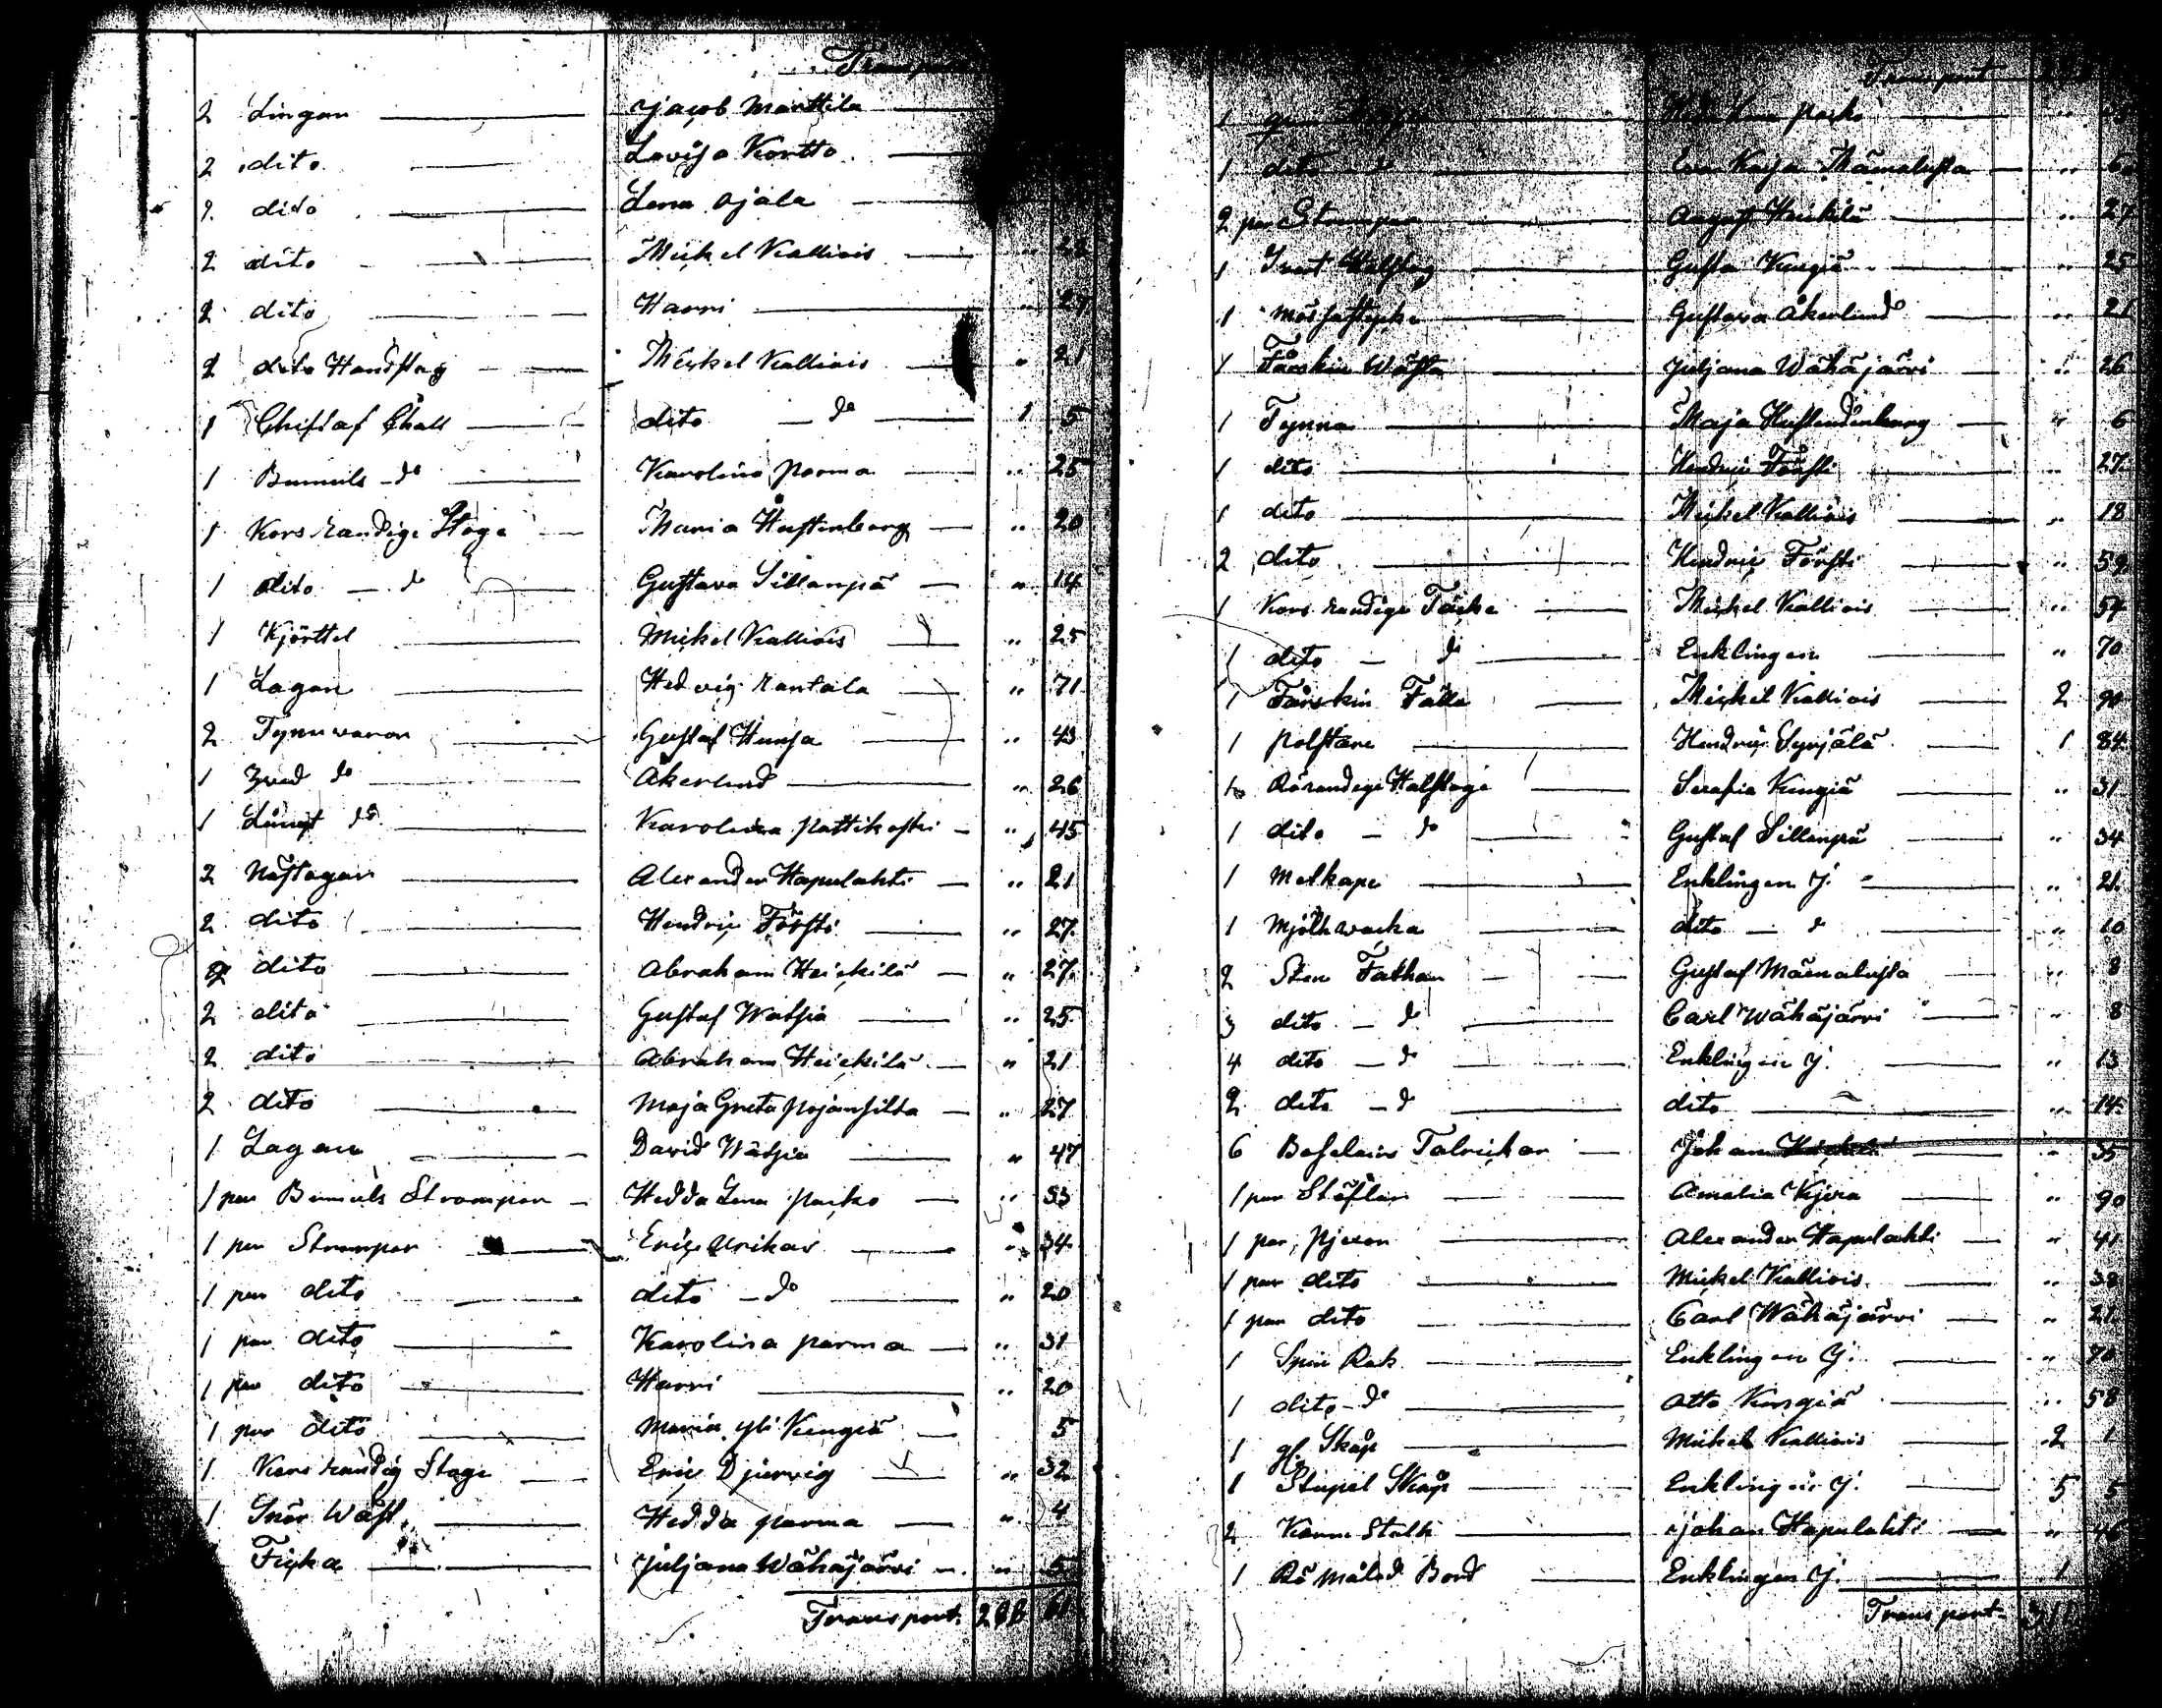 Transport
2 Lingon Jacob Marttila
2 dito Lovisa Kortto
2 dito Lena Ojala
2 dito Mickel Kallioi͏s " 28
2 dito Harri " 27
2 dito Handstag Mickel Kalliois " 21
1 Chistaf Chall dito — do 1 5
1 Bumuls do Karolina parma " 25
1 Kors randige Stoge Maria Hustenberg " 20
1 dito — do Gustava Sillanpä " 14
1 Kjörttel Mickel Kalliois " 25
1 Lagan Hedvig Rantala " 71
2 Tynnwaror Gustaf Hunsa " 43
1 do Åkerlund " 26
1 do Karolina pattikoski " 45
2 Nästagar Alexander Hapulahti " 21
2 dito Hendric Försti " 27
2 dito Abraham Heickilä " 27
2 dito Gustaf Watsia " 25
2 dito Abraham Heickilä " 21
2 dito Maja Greta pojansilta " 27
1 Lagan David Watsia " 47
1 par Bumuls Strompor Hedda Lena pasko " 53
1 par Strumpor Eric Urikas " 34
1 par dito dito — do " 20
1 par dito Karolina parma " 31
1 par dito Harri " 20
1 par dito Maria yli Kengiä 5
1 Kors randig Stoge Eric Djervig " 32
1 Snör Wäst Hedda parma " 4
Ficka Juljana Wähäjärvi " 5
Transport. 288 61
Transport
1 Hedda Lena pasko "
1 dito do Eva Kajsa Mämalusta " 6
2 par Strumpor August Heickilä " 27
1 Gusta Kengiä " 25
1 Mössastycke Gustava Åkerlund " 21
1 Fårskin Wästa Juljana Wähäjärvi " 26
1 Tynna Maja Hustendenberg " 6
1 dito Hendric Försti " 27
1 dito Mickel Kalliois " 18
2 dito Hendric Försti " 59
1 Kors randige Täcke Mickel Kalliois " 54
1 dito — do Enklingen " 70
1 Fårskin Fälla Mickel Kalliois 2 90
1 polstare Hendric Syrjälä 1 84
1 Rörandege Halstoge Serafia Kengiä " 31
1 dito — do Gustaf Sillanpä " 34
1 Melkapi Enklingen J. " 21
1 Mjölkwacka dito — do " 10
2 Sten Fathan Gustaf Mämalusta " 8
3 dito — do Carl Wähäjärvi " 8
4 dito — do Enklingen J. " 13
2 dito — do dito " 14
6 Boselains Talrickar Johan " 35
1 par Stöflar Amalia Kjera " 90
1 par pjexor Alexander Hapulahti " 41
1 par dito Mickel Kalliois " 38
1 par dito Carl Wähäjärvi " 21
1 Spin Rok Enklingen J. " 70
1 dito — do Otto Kengiä " 58
1 gl. Skåp Mickel Kalliois 2 1
1 Stupel Skåp Enklingen J. 5 5
2 Karm Stolk Johan Hapulahti " 46
1 Rö målad Bord Enklingen J. 1
Transport